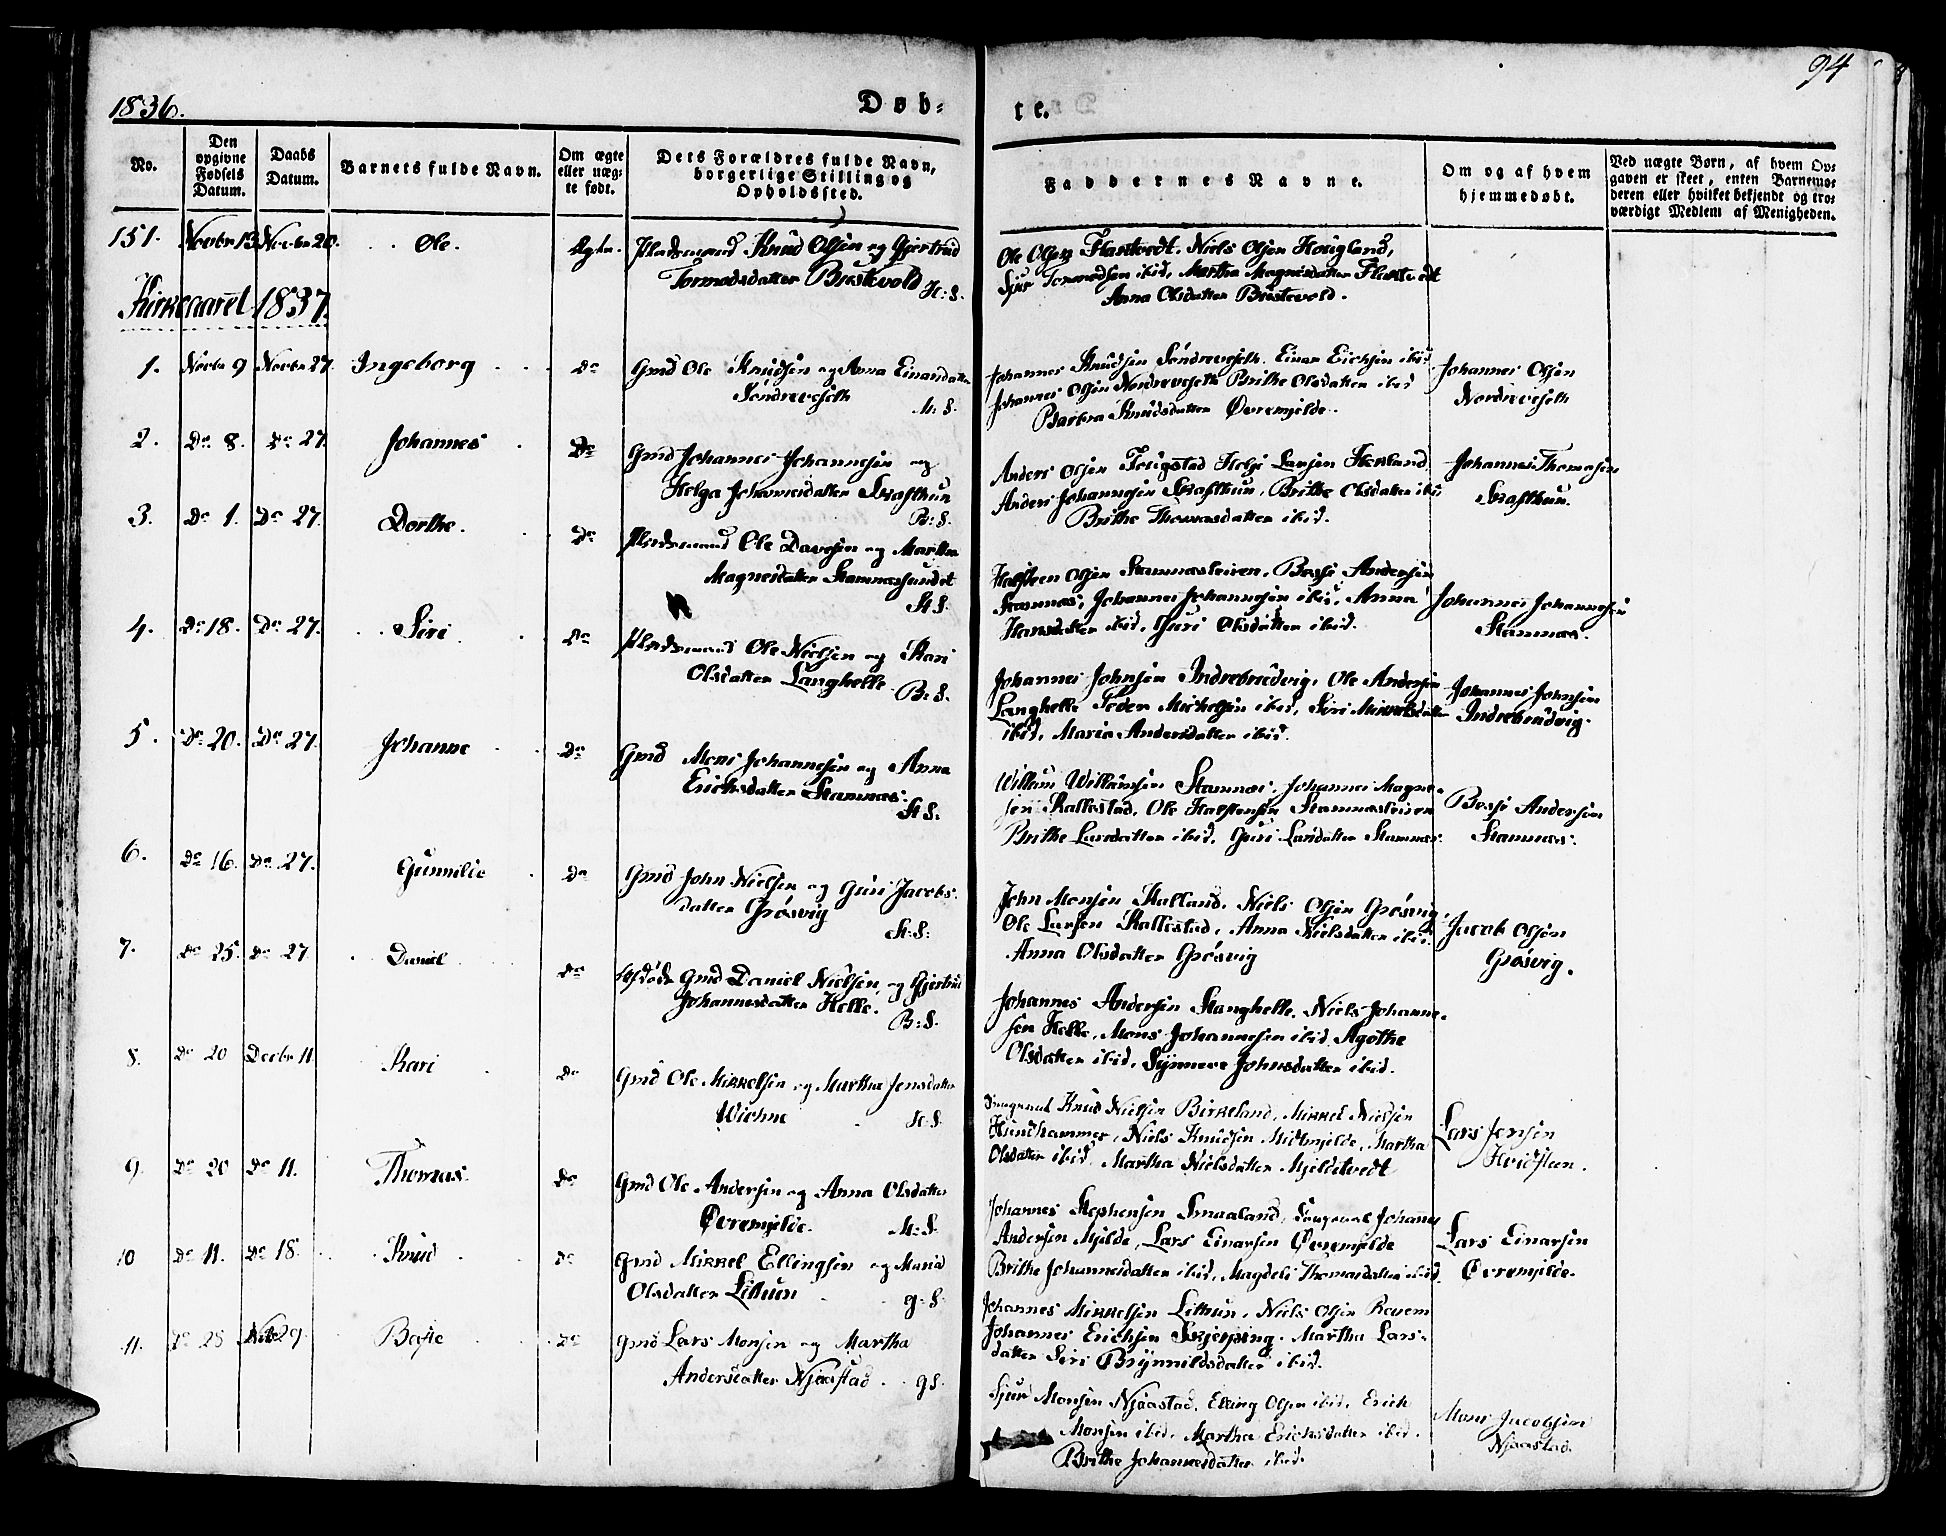 94
1836.
Døb-
te.
No.
Den opgivne Fødsels Datum.
Daabs Datum.
Barnets fulde Navn.
Om ægte eller uægte født.
Dets Forældres fulde Navn, borgerlige Stilling og Opholdssted.
Faddernes Navne.
Om og af hvem hjemmedøbt.
Ved uægte Børn, af hvem Opgaven er skeet, enten Barnemoderen eller hvilket bekjendt og troværdigt Medlem af Menigheden.
151. Novbr 13 Novbr 20. Ole. Ægte. Pladsmand Knud Olsen og Gjertrud
Tormodsdatter Brustevold H: S.
Ole Olsen Flastvedt, Niels Olsen Hougland,
Sjur Tormodsen ibid, Martha Magnesdatter Flastvedt
Anna Olsdatter Brustevold.
Kirkeaaret 1837.
1. Novbr 9 Novbr 27. Ingeborg Do Gmd Ole Knudsen og Anna Einarsdatter
Søndrevejseth H: S.
Johannes Knudsen Søndrevejseth, Einar Erichsen ibid
Johannes Olsen Nordrevejseth Brithe Olsdatter ibid
Barbra Knudsdatter Øvremjelde.
Johannes Olsen
Nordrevejseth
2. Do 8. Do 27 Johannes Do Gmd Johannes Johannesen og
Helga Johannesdatter Skafthun B: S.
Anders Olsen Fougstad Helje Larsen Hesland
Anders Johannesen Skafthun, Brithe Olsdatter ibid
Brithe Thomasdatter ibid.
Johannes Thomasen
Skafthun.
3. Do 1. Do 27. Dorthe. Do Pladsmand Ole Davidsen og Martha
Magnesdatter Stamnæssundet St S.
Halsteen Olsen Stamnæsleiren, Børge Andersen
Stamnæs, Johannes Johannesen ibid, Anna
Hansdatter ibid, Guri Olsdatter ibid.
Johannes Johannesen
Stamnæs.
4. Do 18. Do 27. Siri Do Pladsmand Ole Nielsen og Kari
Olsdatter Langhelle B: S.
Johannes Johnsen Indrebrudvig, Ole Andersen
Langhelle Peder Michelsen ibid, Siri Mikkelsdatter
ibid, Maria Andersdatter ibid.
Johannes Johnsen
Indrebrudvig.
5. Do 20. Do 27. Johanne Do Gmd Mons Johannesen og Anna
Erichsdatter Stamnæs. St S:
Willum Willumsen Stamnæs, Johannes Magne-
sen Kallestad, Ole Halstensen Stamnæsleiren
Brithe Larsdatter ibid, Guri Larsdatter Stamnæs.
Børge Andersen
Stamnæs.
6. Do 16. Do 27. Gunnilde Do Gmd John Nielsen og Guri Jacobs-
datter Grøsvig St: S:
John Monsen Kalland, Niels Olsen Grøsvig,
Ole Larsen Kallestad, Anna Nielsdatter ibid.
Anna Olsdatter Grøsvig
Jacob Olsen
Grøsvig.
7. Do 25. Do 27 Daniel Do Afdøde Gmd Daniel Nielsen og Gjertrud
Johannesdatter Helle. B: S.
Johannes Andersen Stanghelle, Niels Johanne-
sen Helle, Mons Johannesen ibid, Agothe
Olsdatter ibid, Synneve Johnsdatter ibid.
8. Do 20 Decbr 11 Kari Do Gmd Ole Mikkelsen og Martha Jensdatter
Wichne H: S.
Knud Nielsen Birkeland, Mikkel Nielsen
Hundhammer, Niels Knudsen Midtmjelde, Martha
Olsdatter ibid, Martha Nielsdatter Mjeldetvedt
Lars Jensen
Hvidsteen.
9. Do 20 Do 11. Thomas. Do Gmd Ole Andersen og Anna Olsdatter
Øvremjelde. H: S.
Johannes Stephensen Smaaland, Johannes
Andersen Mjelde, Lars Einarsen Øvremjelde
Brithe Johannesdatter ibid, Magdeli Thomasdatter ibid.
Lars Einarsen
Øvremjelde.
10 Do 11. Do 18. Knud Do Gmd Mikkel Ellingsen og Maria
Olsdatter Lithun g: S.
Johannes Mikkelsen Lithun, Niels Olsen Revem
Johannes Erichsen Skjerping. Martha Lars-
datter Siri Brynnildsdatter ibid.
11. Do 25 29. Børge Do Gmd Lars Monsen og Martha
Andersdatter Njaastad g S.
Sjur Monsen Njaastad, Elling Olsen ibid, Erich
Monsen ibid, Martha Erichsdatter ibid.
Brithe Johannesdatter ibid.
Mons Jacobsen
Njaastad.